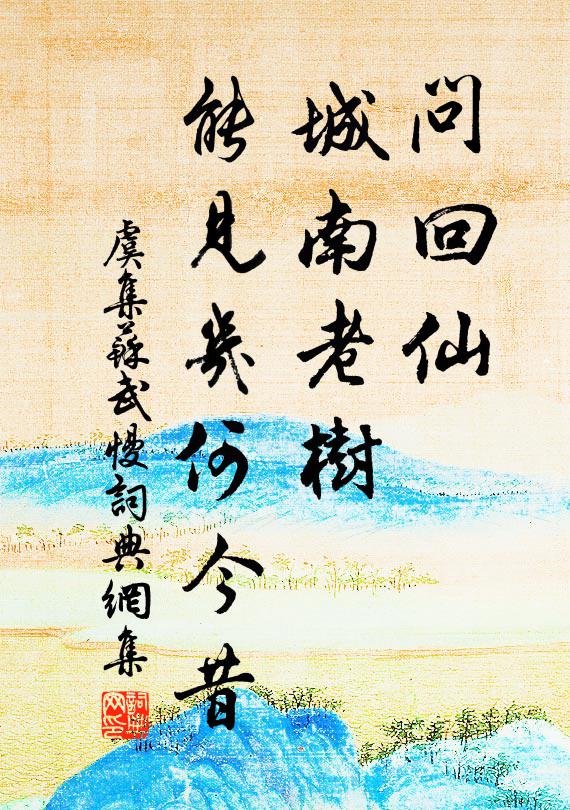 問回仙
城南老樹
能見幾何今昔
虞集蘇武慢詞典網集